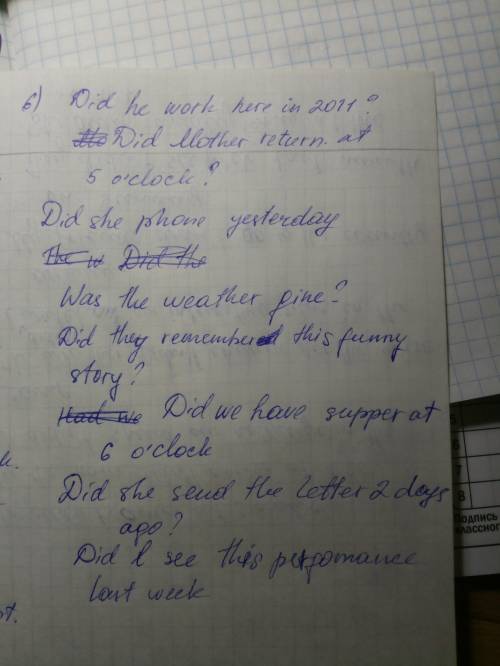 б) Did he work here in 2011?
Did Mother return. at
5 o'clock?
Did she phone yesterday
The w Did the
Was the weather fine?
Did they remember this funny
story?
Had we Did we have supper at
6 o'clock
Did she send the letter 2 days
ago?
Did I see this perfomance
last week
5
6
7
8
Подпись
классног